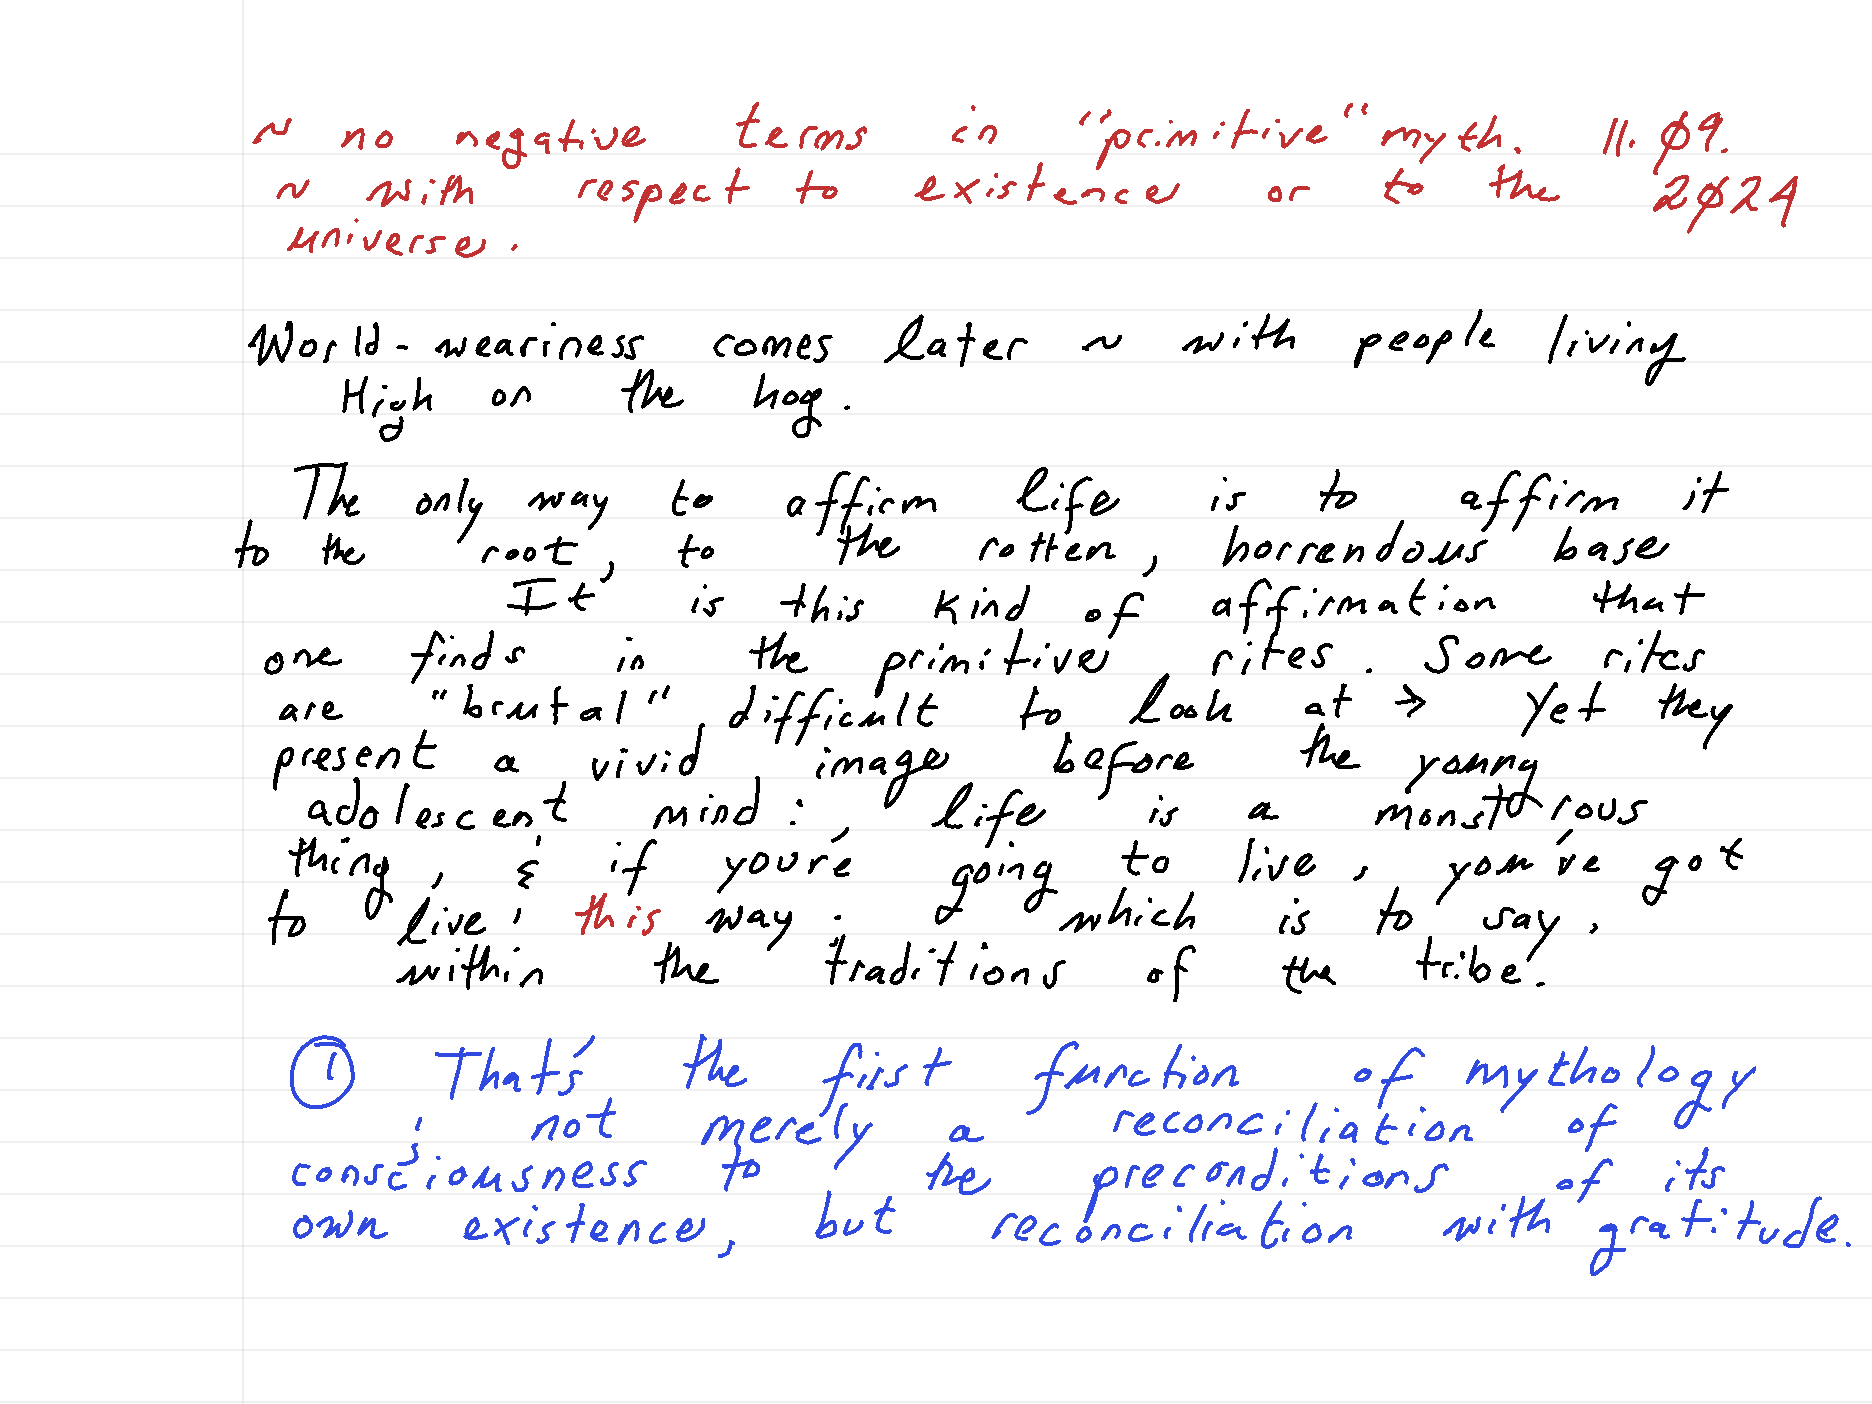 ~ no negative terms in "primitive" myth. 11.09.
~ with respect to existence or to the 2024
universe.
World-weariness comes later ~ with people living
High on the hog.
The only way to affirm life is to affirm it
to the root, to the rotten, horrendous base
It is this kind of affirmation that
one finds in the primitive rites. Some rites
are "brutal", difficult to look at → Yet they
present a vivid image before the young
adolescent mind: life is a monstrous
thing, & if you're going to live, you've got
to live this way. which is to say,
within the traditions of the tribe.
① That's the first function of mythology
; not merely a reconciliation of
consciousness to the preconditions of its
own existence, but reconciliation with gratitude.